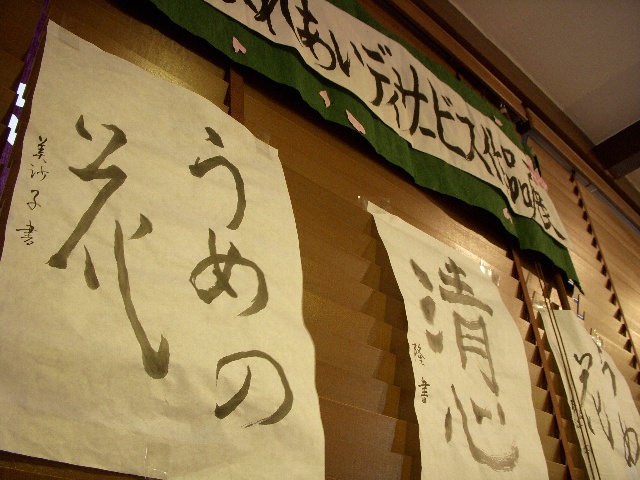 れあいディサービス作品展
うめの
花
美沙子書
清心
隆書
うめ
花